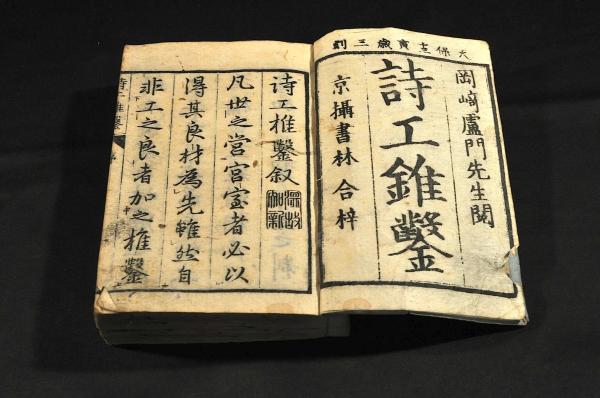 天保壬寅歳三刻
岡崎廬門先生閲
詩工錐鑿
京攝書林 合梓
詩工椎鑿叙
凡世之営宮室者必以
得其良材為先雖然自
非工之良者加之椎鑿